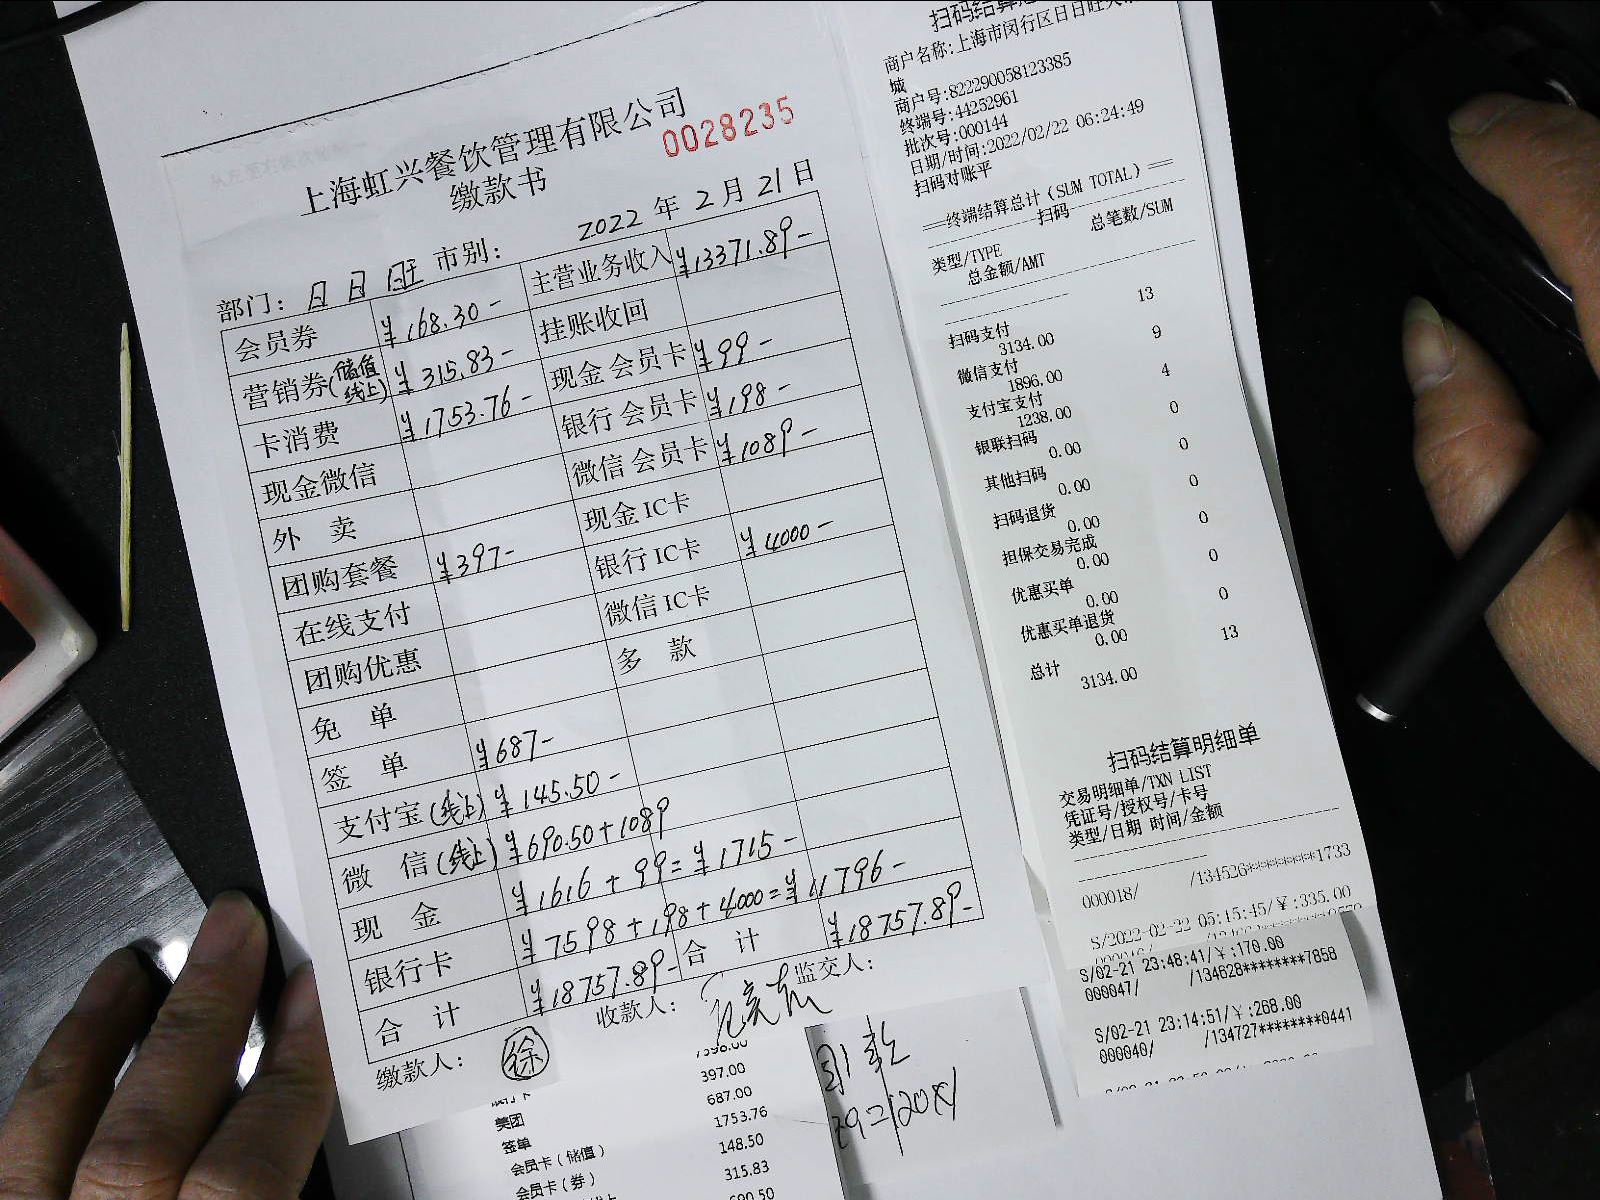 上海虹兴餐饮管理有限公司
0028235
缴款书
2022 年 2 月 21 日
部门： 日日旺 市别：
会员券 ¥168.30- 主营业务收入 ¥13371.89-
营销券(储值线上) ¥315.83- 挂账收回
卡消费 ¥1753.76- 现金会员卡 ¥99-
现金微信 银行会员卡 ¥198-
外 卖 微信会员卡 ¥1089-
团购套餐 ¥397- 现金IC卡
在线支付 银行IC卡 ¥4000-
团购优惠 微信IC卡
免 单 多 款
签 单 ¥687-
支付宝(线上) ¥145.50-
微 信(线上) ¥690.50+1089
现 金 ¥1616+99=¥1715-
银行卡 ¥7598+198+4000=¥11796-
合 计 ¥18757.89- 合 计 ¥18757.89-
缴款人： 徐 收款人： 监交人：
397.00
美团 687.00
签单 1753.76
会员卡（储值） 148.50
会员卡（券） 315.83
690.50
扫码结算
商户名称:上海市闵行区日日旺
城
商户号:822290058123385
终端号:44252961
批次号:000144
日期/时间:2022/02/22 06:24:49
扫码对账平
==终端结算总计(SUM TOTAL)==
扫码
类型/TYPE 总笔数/SUM
总金额/AMT
扫码支付 13
3134.00
微信支付 9
1896.00
支付宝支付 4
1238.00
银联扫码 0
0.00
其他扫码 0
0.00
扫码退货 0
0.00
担保交易完成 0
0.00
优惠买单 0
0.00
优惠买单退货 0
0.00
总计 13
3134.00
扫码结算明细单
交易明细单/TXN LIST
凭证号/授权号/卡号
类型/日期 时间/金额
000018/ /134526*********1733
S/2022-02-22 05:15:45/¥:335.00
S/02-21 23:48:41/¥:170.00
000047/ /134628********7858
S/02-21 23:14:51/¥:268.00
000040/ /134727********0441